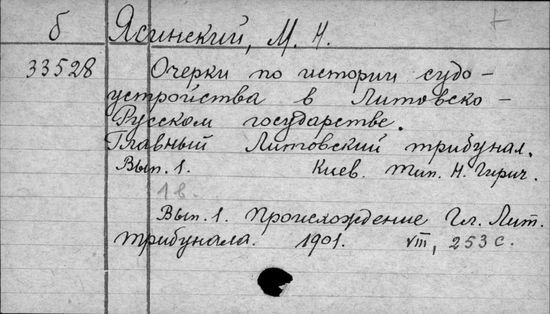 б Ясинский, М. Н.
33528 Очерки по истории судо-
устройства в Литовско-
Русском государстве.
Главный Литовский трибунал.
Вып. 1. Киев. Тип. Н. Гирич.
1 в.
Вып. 1. Происхождение Гл. Лит.
трибунала. 1901. VIII, 253 с.